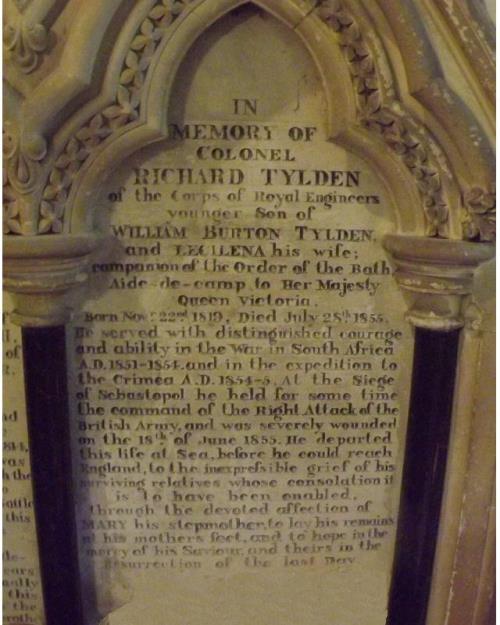 IN
MEMORY OF
COLONEL
RICHARD TYLDEN
of the Corps of Royal Engineers
younger Son of
WILLIAM BURTON TYLDEN,
and LECILENA his wife;
companion of the Order of the Bath,
Aide-de-camp to Her Majesty
Queen Victoria.
Born Novr. 22nd 1819, Died July 28th 1855.
He served with distinguished courage
and ability in the War in South Africa
A.D. 1851-1854. and in the expedition to
the Crimea A.D. 1854-5. At the Siege
of Sebastopol he held for some time
the command of the Right Attack of the
British Army, and was severely wounded
on the 18th of June 1855. He departed
this life at Sea, before he could reach
England, to the inexpressible grief of his
surviving relatives whose consolation it
is to have been enabled,
through the devoted affection of
MARY his stepmother, to lay his remains
at his mothers feet, and to hope in the
mercy of his Saviour, and theirs in the
Resurrection of the last Day
of
and
1814,
was
this
de-
ears
this